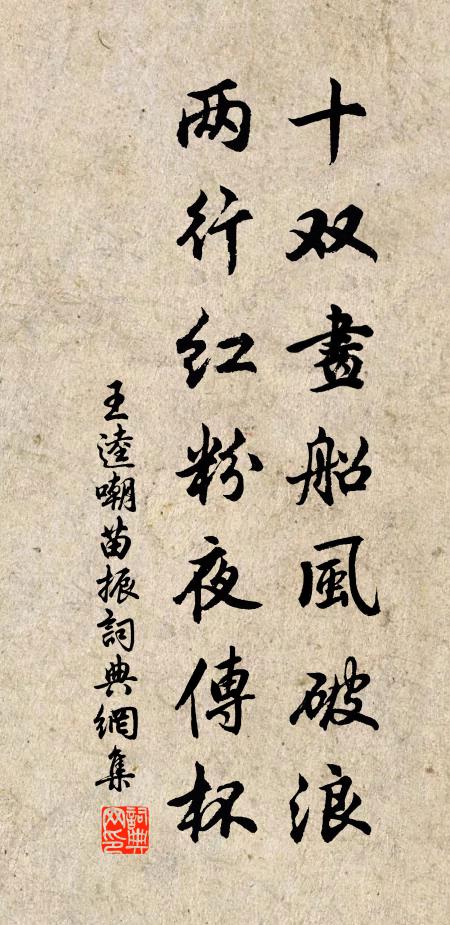 十双畫船風破浪
两行红粉夜傳杯
王逵嘲苗振詞典網集
詞典网印